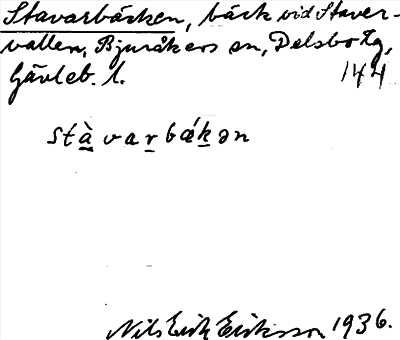 Stavarbäcken, bäck vid Staver-
vallen, Bjuråkers sn, Delsbo tg,
Gävleb. l. 144
stàvarbǽkən
Nils Erik Eriksson 1936.